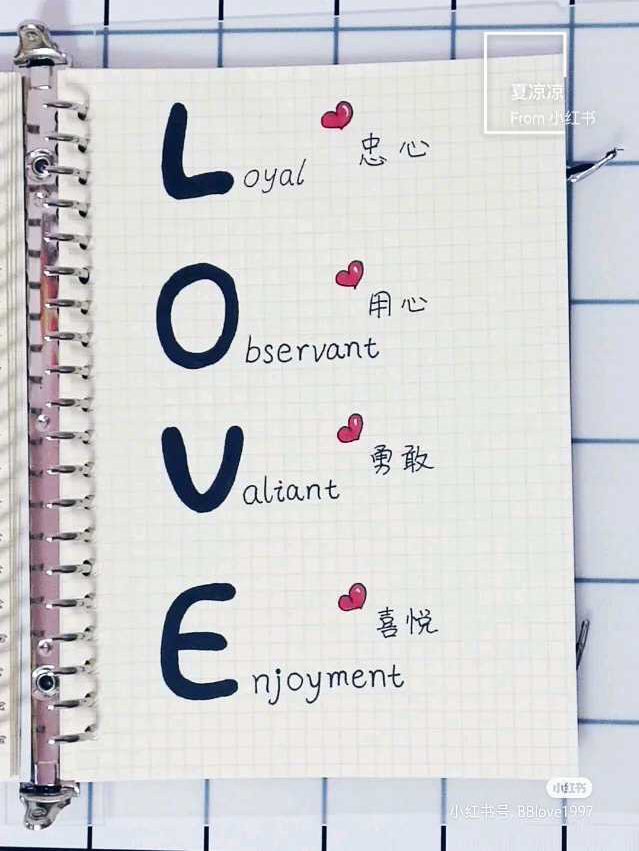 夏凉凉
From 小红书
Loyal 忠心
Observant 用心
Valiant 勇敢
Enjoyment 喜悦
小红书
小红书号: BBlove1997